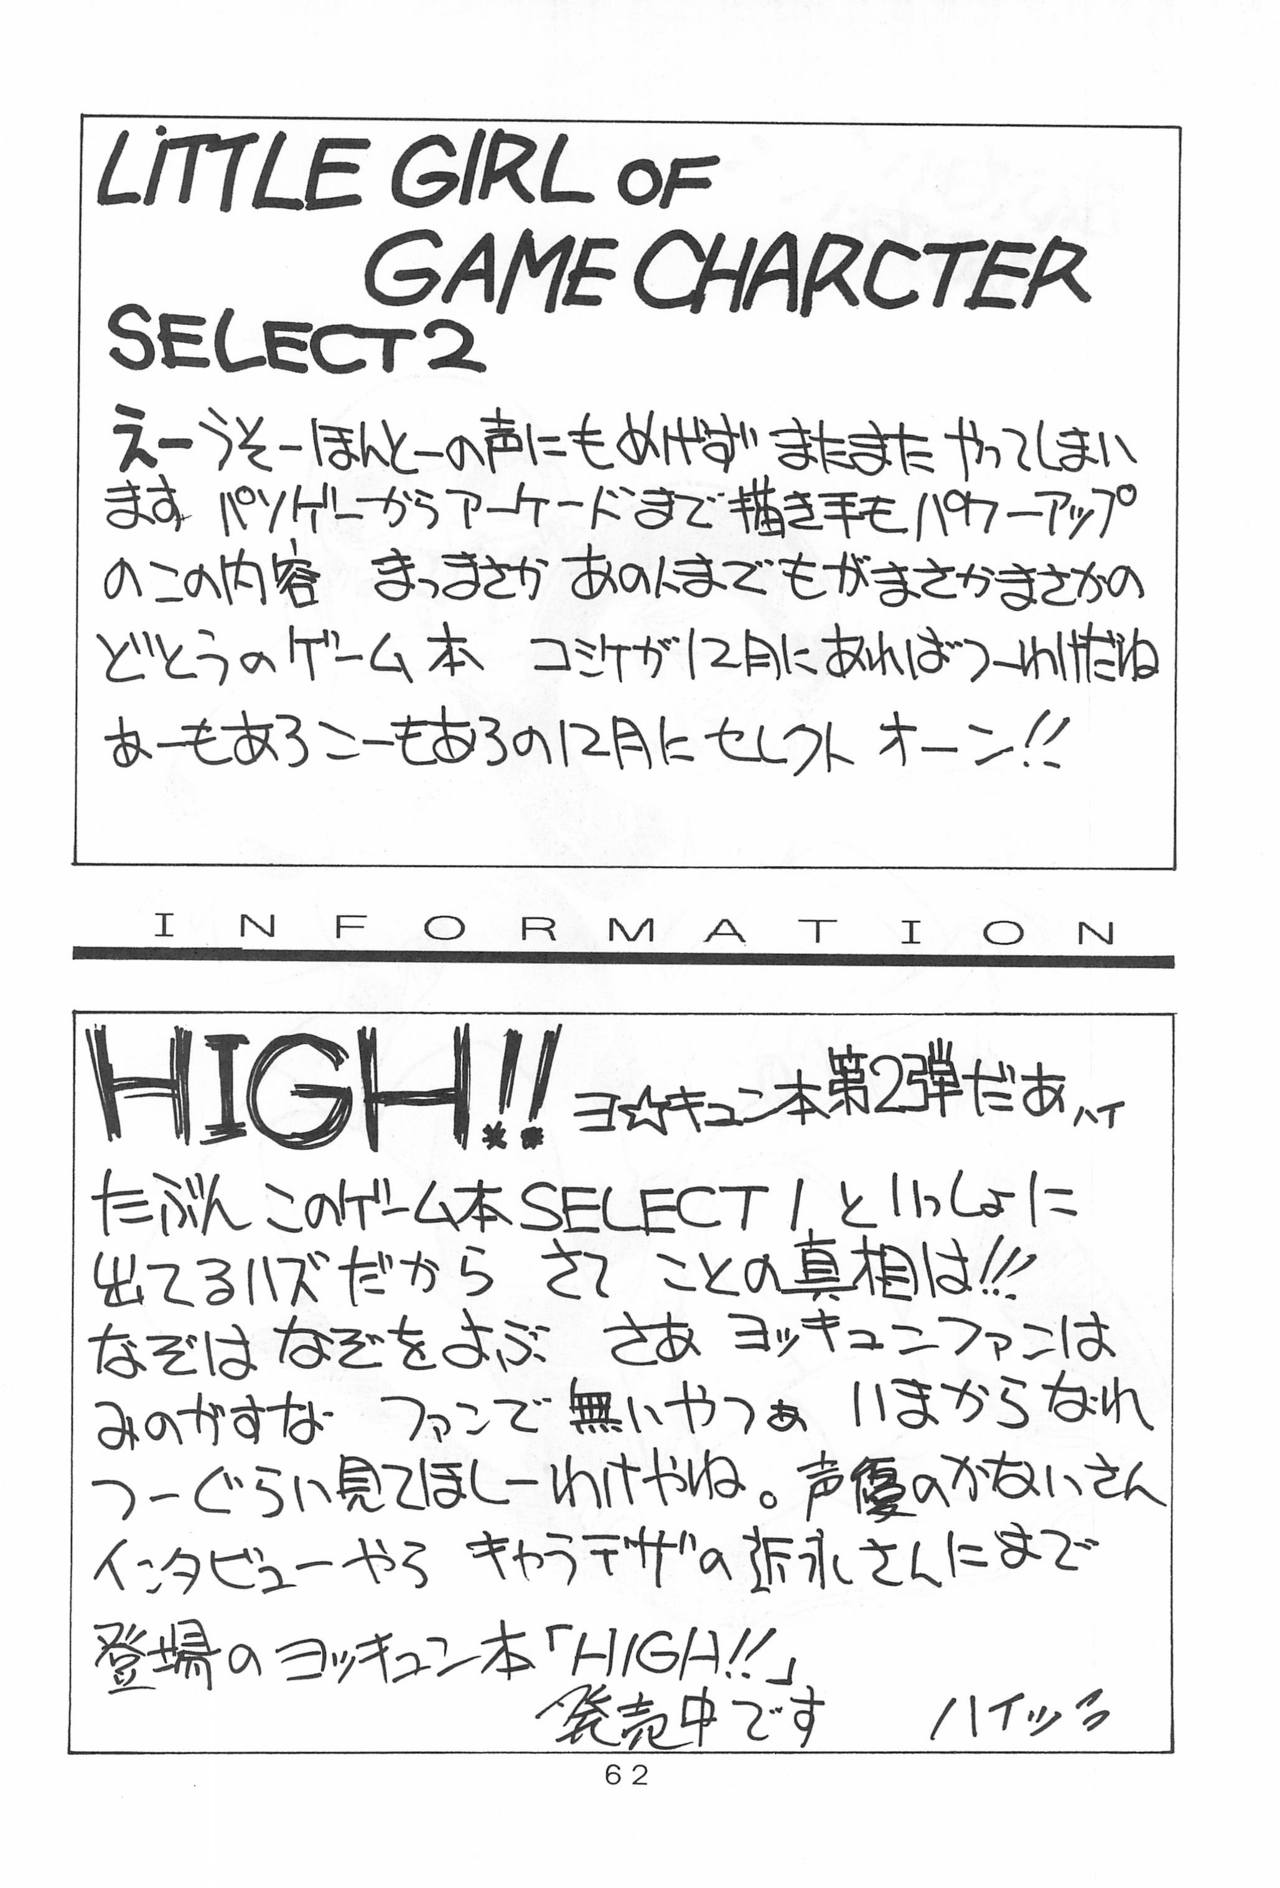 LiTTLE GIRL OF
GAME CHARCTER
SELECT2
えーうそーほんとーの声にもめげず またまた やってしまい
ます パソゲーからアーケードまで描き手もパワーアップ
のこの内容 まっまさか あの人までもがまさかまさかの
どとうのゲーム本 コミケが12月にあればつーわけだね
あーもあろこーもあろの12月にセレクト オーン!!
INFORMATION
HIGH!! ヨ☆キュン本第2弾だあ ハイ
たぶん このゲーム本SELECT1 といっしょに
出てるハズだから さて ことの真相は!!!
なぞは なぞをよぶ さあ ヨッキュンファンは
みのがすな ファンで無いやつぁ いまからなれ
つーぐらい見てほしーわけやね。声優のかないさん
インタビューやら キャラデザの 永さんにまで
登場のヨッキュン本「HIGH!!」
発売中です ハイッ
62